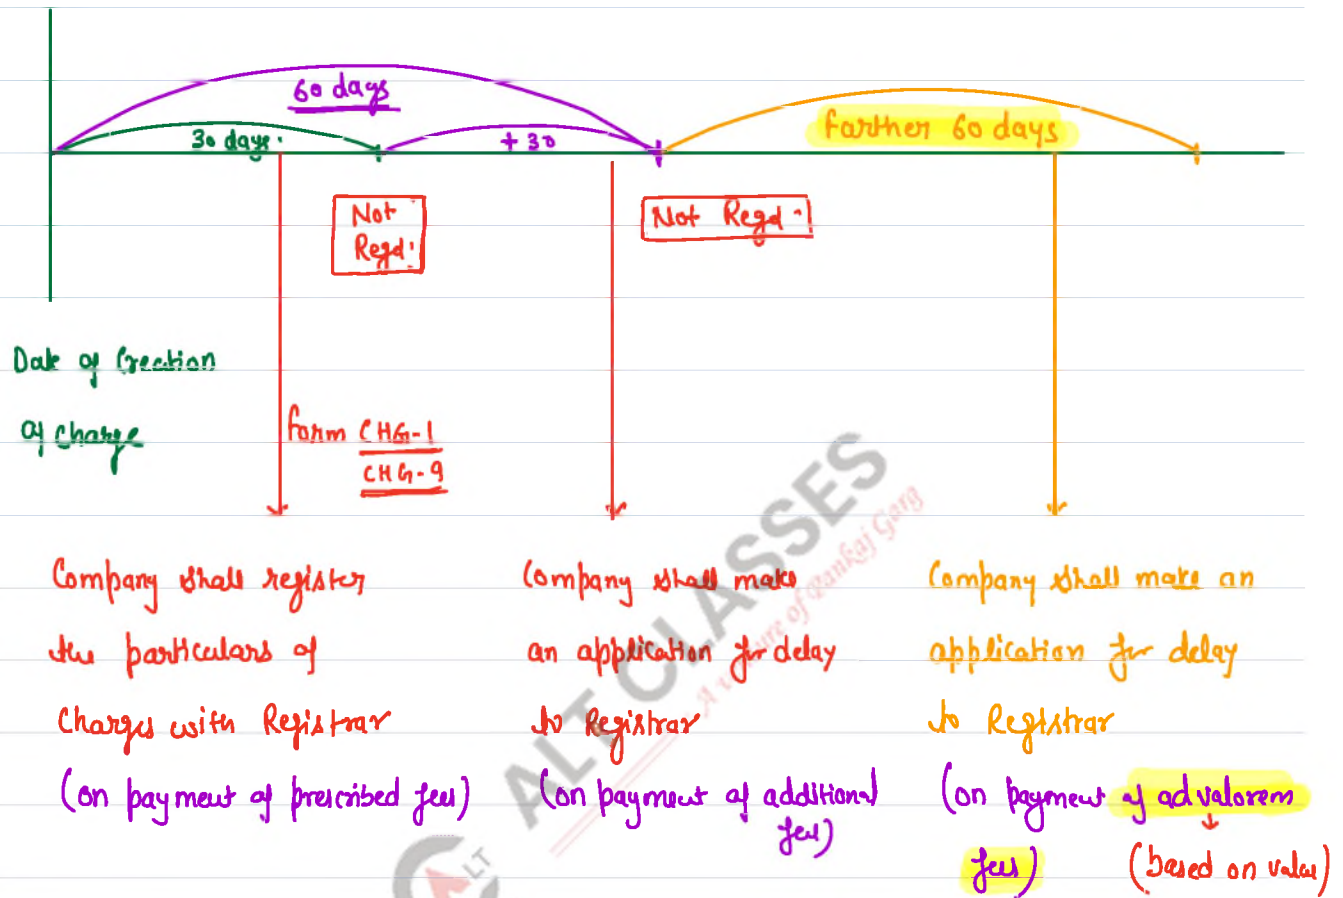 60 days
30 days.
+ 30
farther 60 days
Not
Regd.
Not Regd.
Date of Creation
of charge
form CHG-1
CHG-9
Company shall register
the particulars of
Charges with Registrar
(on payment of prescribed fees)
Company shall make
an application for delay
to Registrar
(on payment of additional
fees)
Company shall make an
application for delay
to Registrar
(on payment of advalorem
fees)
(based on value)
ALT CLASSES
A Venture of Pankaj Garg
ALT